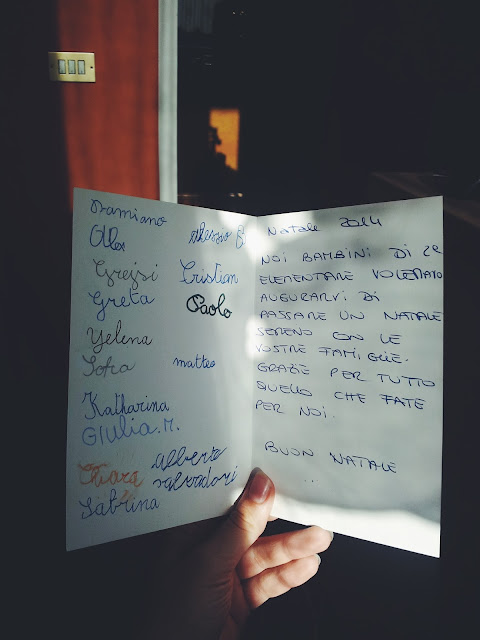 Damiano
Alex
Grejsi Cristian
Greta Paolo
Yelena
matteo
Katharina
GIULIA. M.
Chiara alberto
salvadori
Sabrina
NATALE 2014
NOI BAMBINI DI 2E
ELEMENTARE VOLEVAMO
AUGURARVI DI
PASSARE UN NATALE
SERENO CON LE
VOSTRE FAMIGLIE.
GRAZIE PER TUTTO
QUELLO CHE FATE
PER NOI.
BUON NATALE